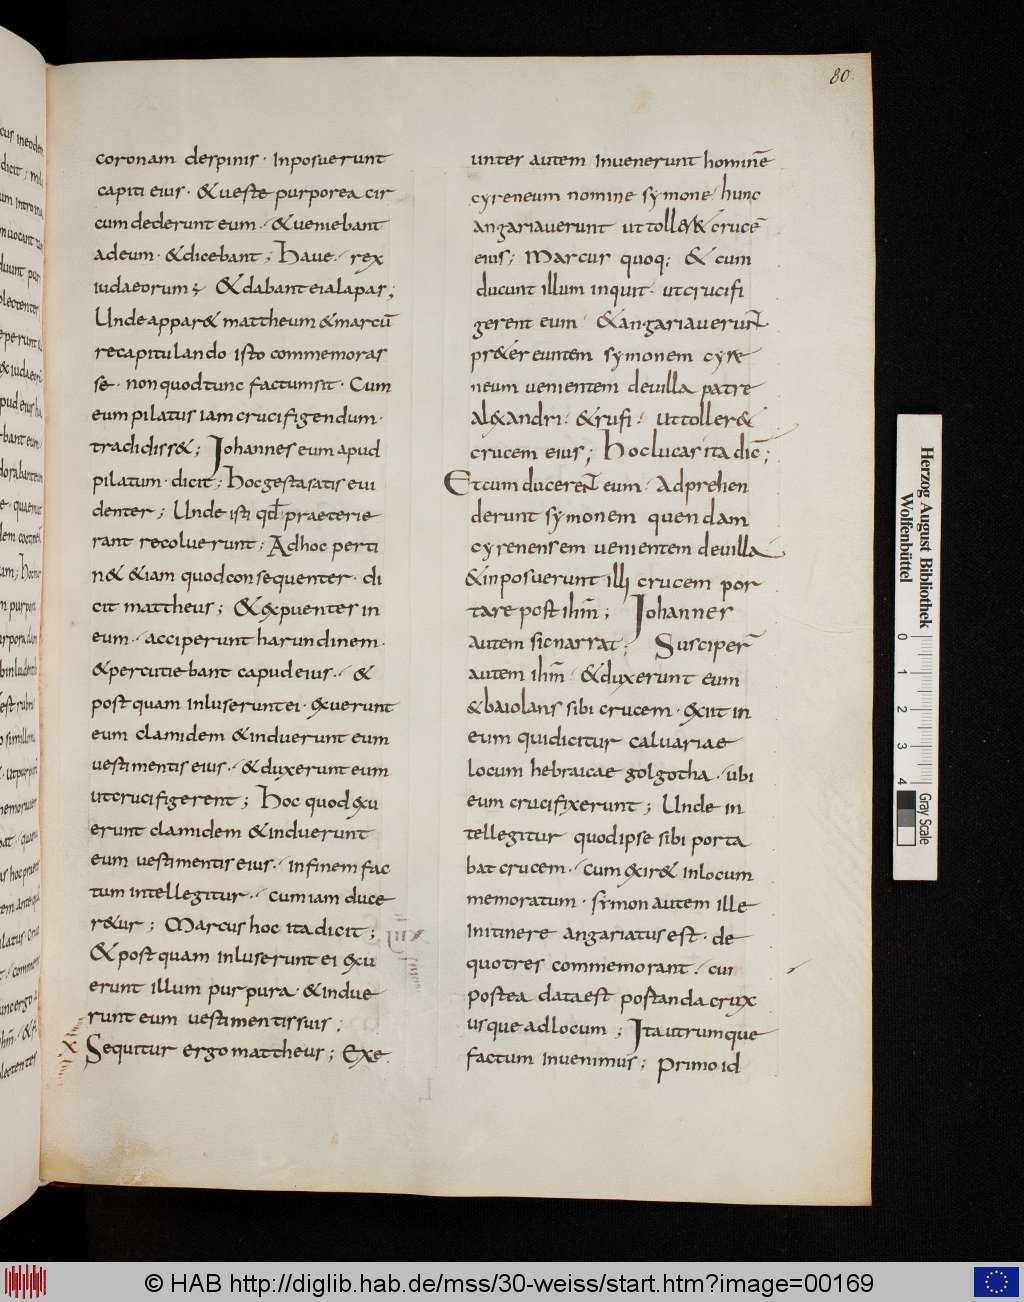 80.
coronam despinis· Inposuerunt
capiti eius· &ueste purporea cir
cum dederunt eum·/ &ueniebant
adeum· &dicebant; haue·/ rex
iudaeorum; &dabant eialapas;
Unde appar& mattheum &marcū
recapitulando isto commemoras
se· nonquodtunc factumsit· Cum
eum pilatus iam crucifigendum·
tradidiss&; Johannes eum apud
pilatum· dicit; hocgestasatis eui
denter; Unde isti qđ praeterie
rant recoluerunt; Adhoc perti
n& &iam quodconsequenter· di
cit mattheus; &expuentes in
eum·/ acciperunt harundinem·
&percutiebant capud eius·/ &
post quam inluserunt ei· exuerunt
eum clamidem &induerunt eum
uestimentis eius·/ &duxerunt eum
utcrucifigerent; hoc quod exu
erunt clamidem &induerunt
eum uestimentis eius·/ infinem fac
tum intellegitur·/ cum iam duce
r&ur; Marcus hoc ita dicit;
&post quam inluserunt ei exu
erunt illum purpura· &indue
runt eum uestimentissuis;
X Sequitur ergo mattheus; Exe
XIII
unter autem Inuenerunt hominē
cyreneum nomine symone/ hunc
angariauerunt uttoller& crucē
eius; Marcus quoq; & cum
ducunt illum inquit· utcrucifi
gerent eum/ &angariauerunt
pr&ereuntem symonem cyre
neum uenientem deuilla patre
alexandri·/ &rufi·/ Uttoller&
crucem eius; hoclucas ita dic̄;
Et cum ducerent eum· Adprehen
derunt symonem quendam
cyrenensem uenientem deuilla
&inposuerunt illi crucem por
tare post ihm̄; Johannes
autem sic narrat; Susciper̄
autem ihm̄/ &duxerunt eum
&baiolans sibi crucem· exiit in
eum quidicitur caluariae
locum hebraicae golgotha·/ ubi
eum crucifixerunt; Unde in
tellegitur quodipse sibi porta
bat crucem·/ cum exir& inlocum
memoratum· symon autem ille
Initinere angariatus est· de
quotres commemorant·/ cui
postea data est postanda crux
usque adlocum; Ita utrumque
factum Inuenimus; primo id
Herzog August Bibliothek
Wolfenbüttel
0 1 2 3 4
Gray Scale
© HAB http://diglib.hab.de/mss/30-weiss/start.htm?image=00169